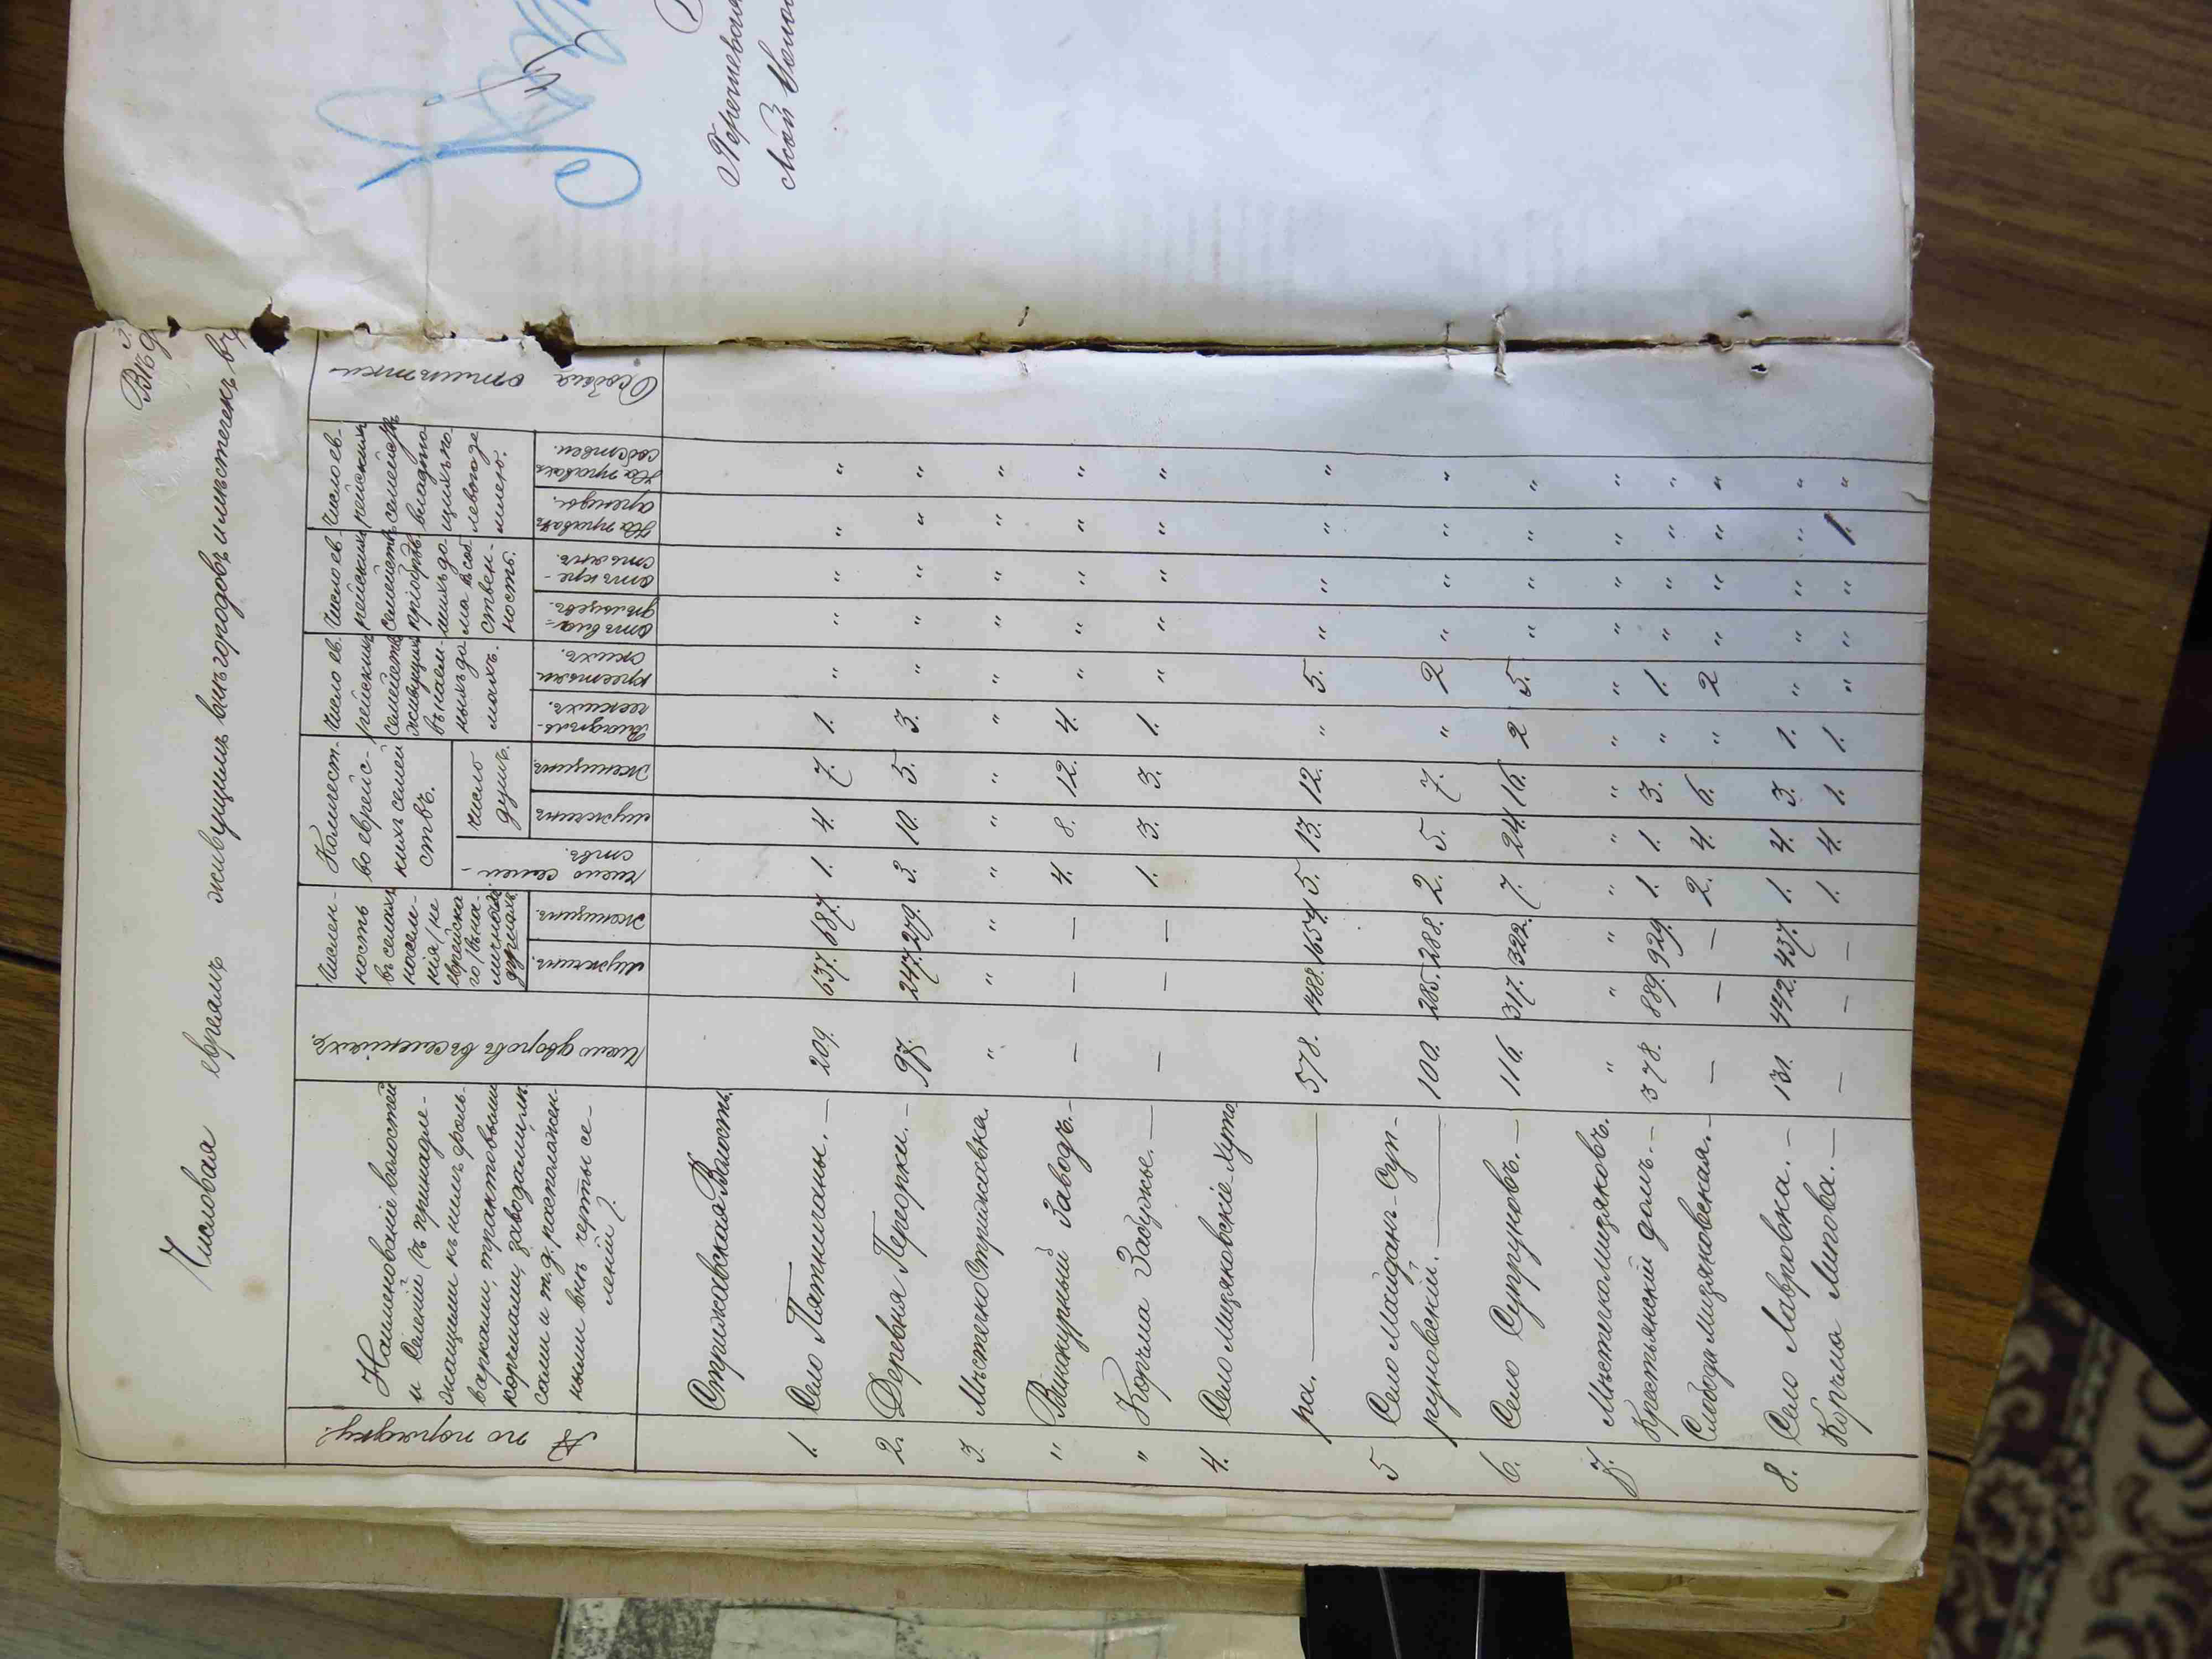 Числовая евреямъ живущимъ внѣ городовъ и мѣстечекъ въ
№ по порядку.
Наименованіе волостей
и селеній (съ принадле-
жащими къ нимъ фоль-
варками, трактовыми
корчмами, заводами, лѣ-
сами и т.д. расположен-
ными внѣ черты се-
леній)
Число дворовъ въ селеніяхъ.
Числен-
ность
въ селахъ
населе-
нія (не
еврейска
го) въ на-
личныхъ
душахъ
мужчинъ.
женщинъ.
Количест-
во еврейс-
кихъ семей
ствъ.
число семей-
ствъ.
число
душъ.
мужчинъ
женщинъ.
Число ев.
рейскихъ
семействъ
живущихъ
въ наем-
ныхъ до
махъ.
владѣль-
ческихъ.
крестьян
скихъ.
Число ев-
рейскихъ
семействъ
пріобрѣв-
шихъ до-
ма въ соб
ствен-
ность.
отъ вла-
дѣльцевъ.
отъ кре-
стьянъ.
Число ев-
рейскихъ
семействъ
владѣю
щихъ по-
левою зе
млею.
На правахъ
аренды.
На правахъ
собствен.
Особыя отмѣтки
Стрижавская Волость.
1. Село Пятничаны. — 209. 637. 687. 1. 4. 7. 1. " " " " "
2. Деревня Переорки. — 97. 247. 279. 3. 10. 5. 3. " " " " "
3. Мѣстечко Стрижавка. " " " " " " " " " " " "
" Винокурный Заводъ. — — — — 4. 8. 12. 4. " " " " "
" Корчма Забужье. — — — — 1. 3. 3. 1. " " " " "
4. Село Мизяковскіе-Хуто
ра. — 578. 1488. 1654. 5. 13. 12. " 5. " " " "
5 Село Майданъ-Суп-
руновскій. — 100. 285. 288. 2. 5. 7. " 2 " " " "
6. Село Супруновъ. — 116. 317. 322. 7. 24. 16. 2 5. " " " "
7. Мѣстечко Мизяковъ. " " " " " " " " " " " "
Крестьянскій домъ. — 378. 889. 929. 1. 1. 3. " 1. " " " "
Слобода Мизяковская. — — — — 2. 4. 6. " 2 " " " "
8. Село Лавровка. — 131. 442. 437. 1. 4. 3. 1. " " " " "
Корчма Липова. — — — — 1. 4. 1. 1. " " " 1. "